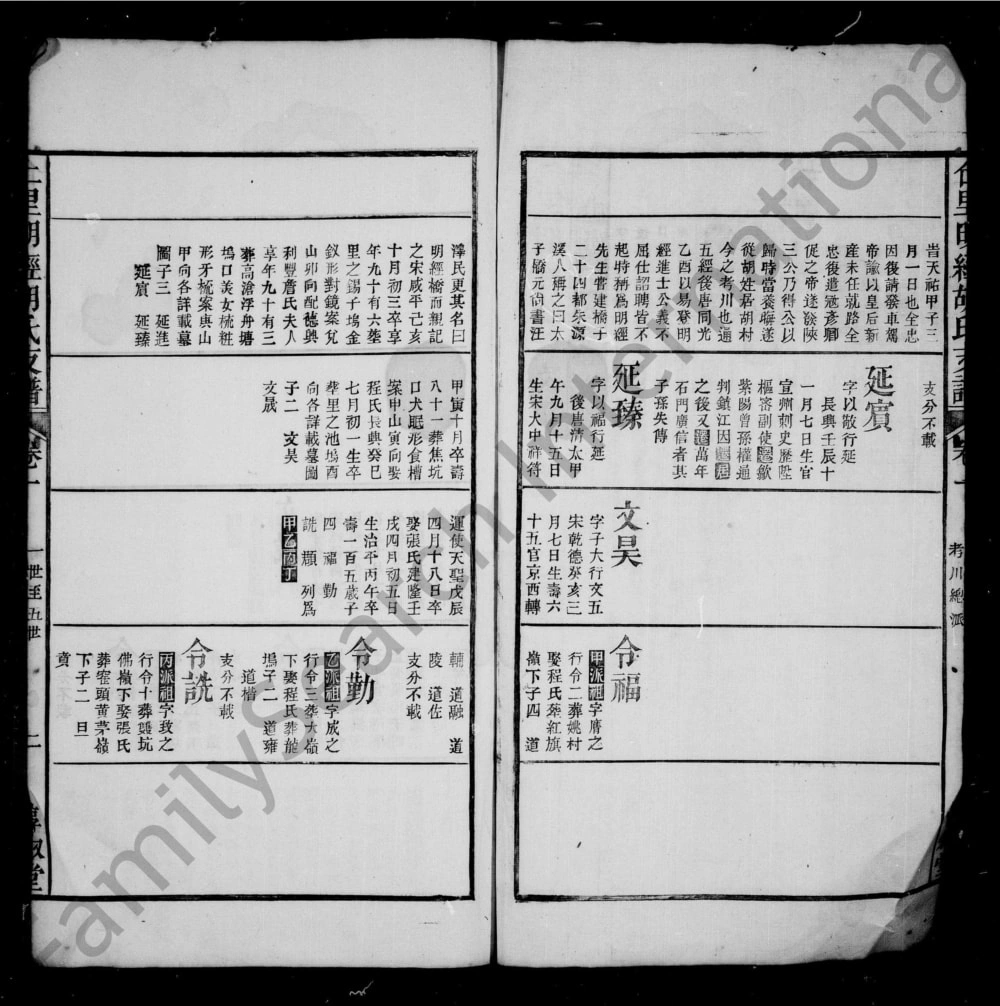 岩天祐甲子三
月一日也全忠
因後請發車駕
帝諭以皇后新
產未任就路全
忠後遣寇彥卿
促之帝遂發陝
三公乃得公以
歸時當養晦遂
從胡姓居胡村
今之考川也通
五經後唐同光
乙酉以易登明
經進士公義不
屈仕詔聘皆不
起時稱為明經
先生嘗建橋于
二十四都朱源
溪人歸之曰太
子橋元尚書汪
支分不載
延賓
字以敬行延
一長興壬辰十
一月七日生官
宣州刺史歷陞
樞密副使
紫陽曾孫權通
判鎮江因
之後又遷萬年
石門廣信者其
子孫失傳
延臻
字以福行延
二後唐清太甲
午九月十五日
生宋大中祥符
文昊
字子大行文五
宋乾德癸亥三
月七日生壽六
十五官京西轉
令福
甲派祖字膺之
行令二葬姚村
娶程氏葬紅旗
嶺下子四 道
澤民更其名曰
明經橋而親記
之宋咸平己亥
十月初三卒享
年九十有六葬
里之錫子塢金
釵形對鏡案兌
山卯向配德興
利豐詹氏夫人
享年九十有三
葬高滄浮舟塘
塢口美女梳粧
形牙梳案庚山
甲向各詳載墓
圖子三 延進
延賓 延臻
甲寅十月卒壽
八十一葬焦坑
口犬眠形食槽
案申山寅向娶
程氏長興癸巳
七月初一生卒
葬里之池塢酉
向各詳載墓圖
子二 文昊
文晟
運使天聖戊辰
四月十八日卒
娶張氏建隆壬
戌四月初五日
生治平丙午卒
壽一百五歲子
四 福 勤
詵 頵 列為
甲乙丙丁
輔 道融 道
陵 道佐
支分不載
令勤
乙派祖字成之
行令三葬大嶺
下娶程氏葬龍
塢子二 道雍
道楷
支分不載
令詵
丙派祖字致之
行令十葬龔坑
佛嶺下娶張氏
葬窰頭黃茅嶺
下子二 旦
賁
仁里明經胡氏支譜
卷一
考川總派
一世至五世
二